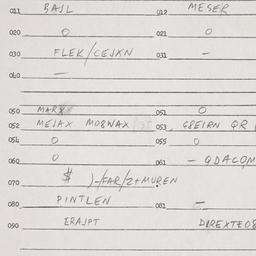 011 BAJL 012 MESER
020 0 021 0
030 FLEK/CEJKN 031 –
040 –
050 MARX 051 0
052 MEJAX MOBWAX 053, G8EIRN QR
054 0 055 0
060 0 061 – QDACOM
070 $ )-/FAR/2+MUREN
080 PINTLEN 081 –
090 ERAJPT DIREXTE08